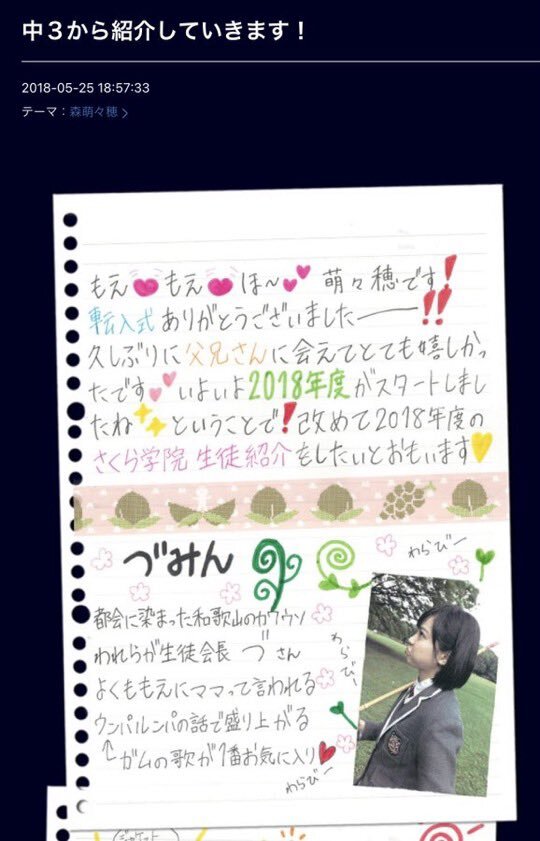 中３から紹介していきます！
2018-05-25 18:57:33
テーマ：森萌々穂 >
もえ もえ ほ〜 萌々穂です!
転入式 ありがとうございましたー!!
久しぶりに父兄さんに会えてとても嬉しかっ
たです いよいよ2018年度がスタートしまし
たね ということで!改めて2018年度の
さくら学院 生徒紹介をしたいとおもいます
づみん
わらびー
都会に染まった和歌山のカワウソ
われらが生徒会長 づさん
よくももえにママって言われる
ウンパルンパの話で盛り上がる
↑ガムの歌が1番お気に入り
わらびー
わらびー
ジャケット